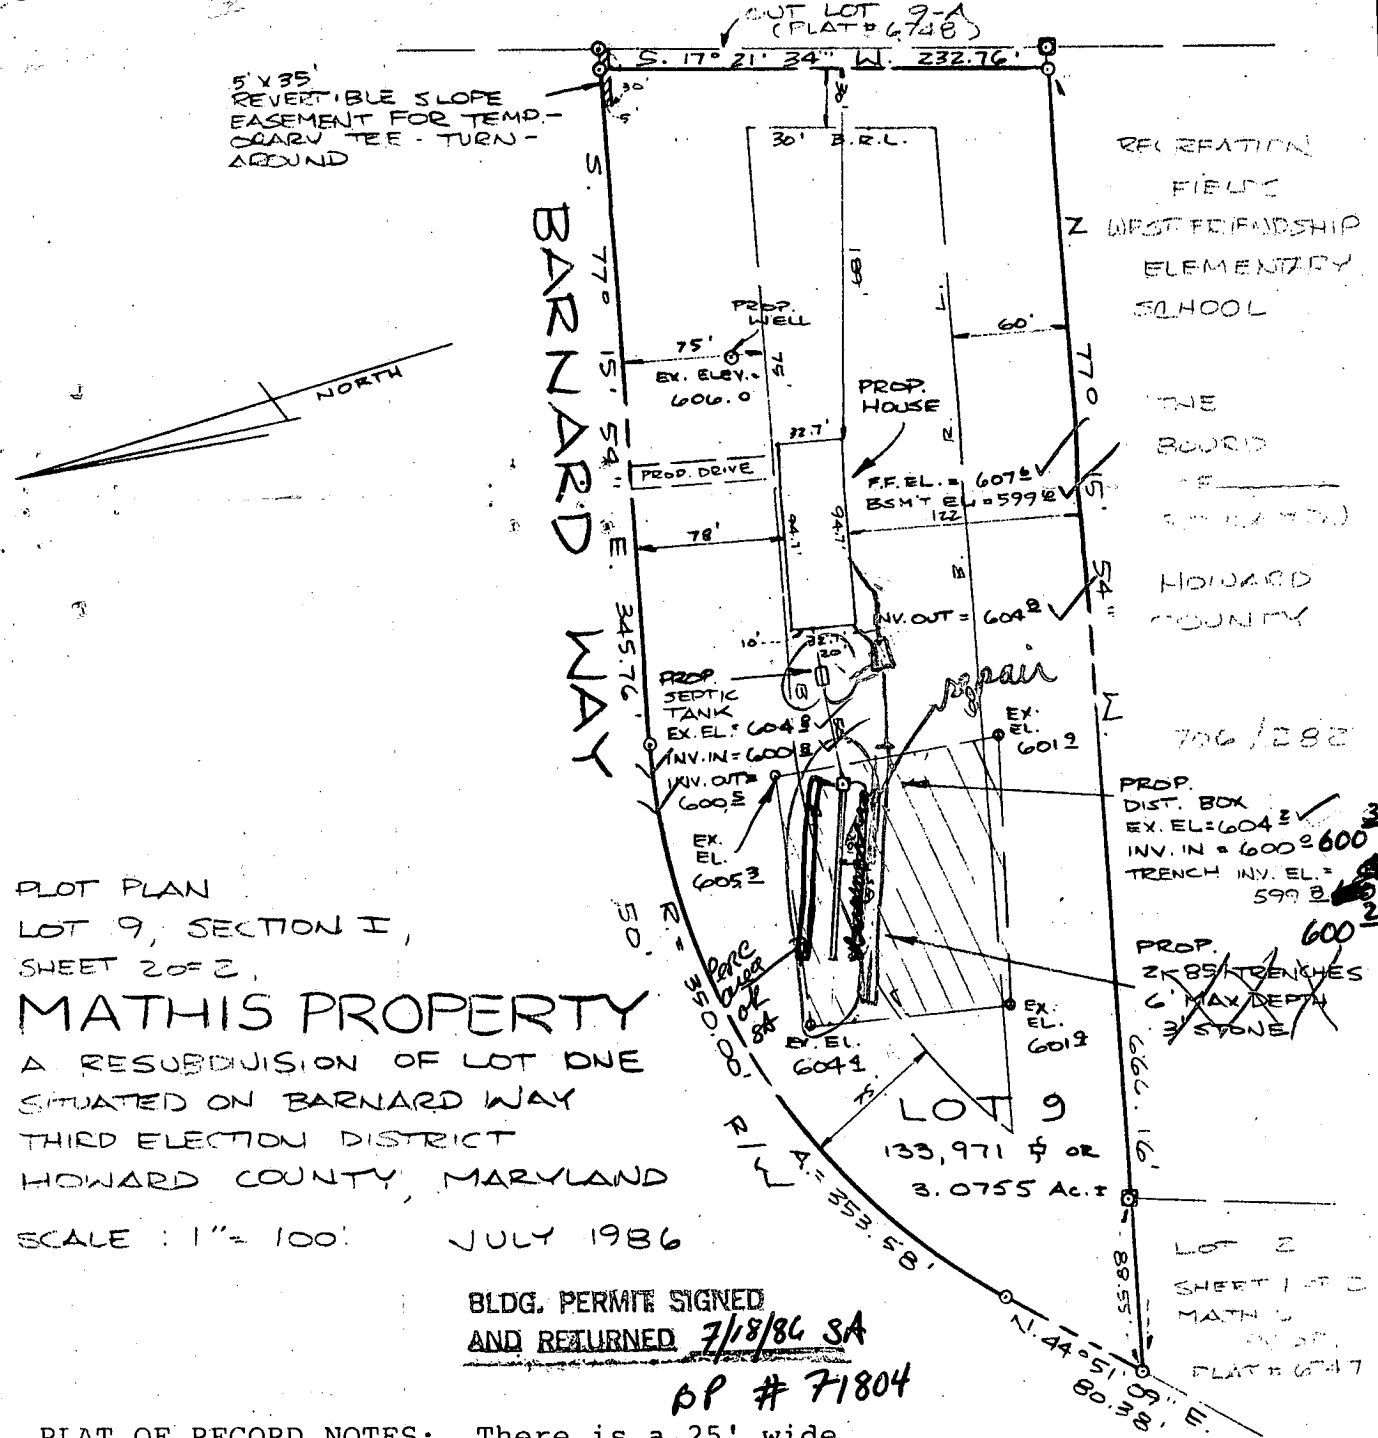 OUT LOT 9-A
(PLAT # 6748)
S. 17° 21' 34" W. 232.76'
5' X 35'
REVERTIBLE SLOPE
EASEMENT FOR TEMP-
ORARY TEE - TURN-
AROUND
30'
5'
30'
30' B.R.L.
RECREATION
FIELDS
WEST FRIENDSHIP
ELEMENTARY
SCHOOL
THE
BOARD
OF
EDUCATION
HOWARD
COUNTY
706/282
S. 77° 15' 54" E. 345.76'
BARNARD WAY
N 77° 15' 54" W.
664.16'
88.55'
NORTH
PROP.
WELL
75'
75'
EX. ELEV. =
606.0
189'
60'
PROP.
HOUSE
32.7'
PROP. DRIVE
F.F. EL. = 607
BSM'T EL = 599
122
94.7'
94.7'
78'
INV. OUT = 604
10'
32.7'
20'
PROP.
SEPTIC
TANK
EX. EL. = 604
INV. IN = 600
INV. OUT =
600
repair
EX.
EL.
601
EX.
EL.
605
PROP.
DIST. BOX
EX. EL = 604
INV. IN = 600
600
TRENCH INV. EL. =
599
600
PROP.
2 X 85' TRENCHES
6' MAX DEPTH
3' STONE
perc
area
ok
SA
EX. EL.
604
EX.
EL.
601
R. = 350.00'
50' R/W
A. = 353.58'
LOT 9
133,971 OR
3.0755 AC.±
N. 44° 51' 09" E.
80.38'
LOT 2
SHEET 1 OF 2
MATHIS
PROP.
PLAT # 6747
PLOT PLAN
LOT 9, SECTION I,
SHEET 2 OF 2,
MATHIS PROPERTY
A RESUBDIVISION OF LOT ONE
SITUATED ON BARNARD WAY
THIRD ELECTION DISTRICT
HOWARD COUNTY, MARYLAND
SCALE : 1" = 100' JULY 1986
BLDG. PERMIT SIGNED
AND RETURNED 7/18/86 SA
BP # 71804
PLAT OF RECORD NOTES: There is a 25' wide